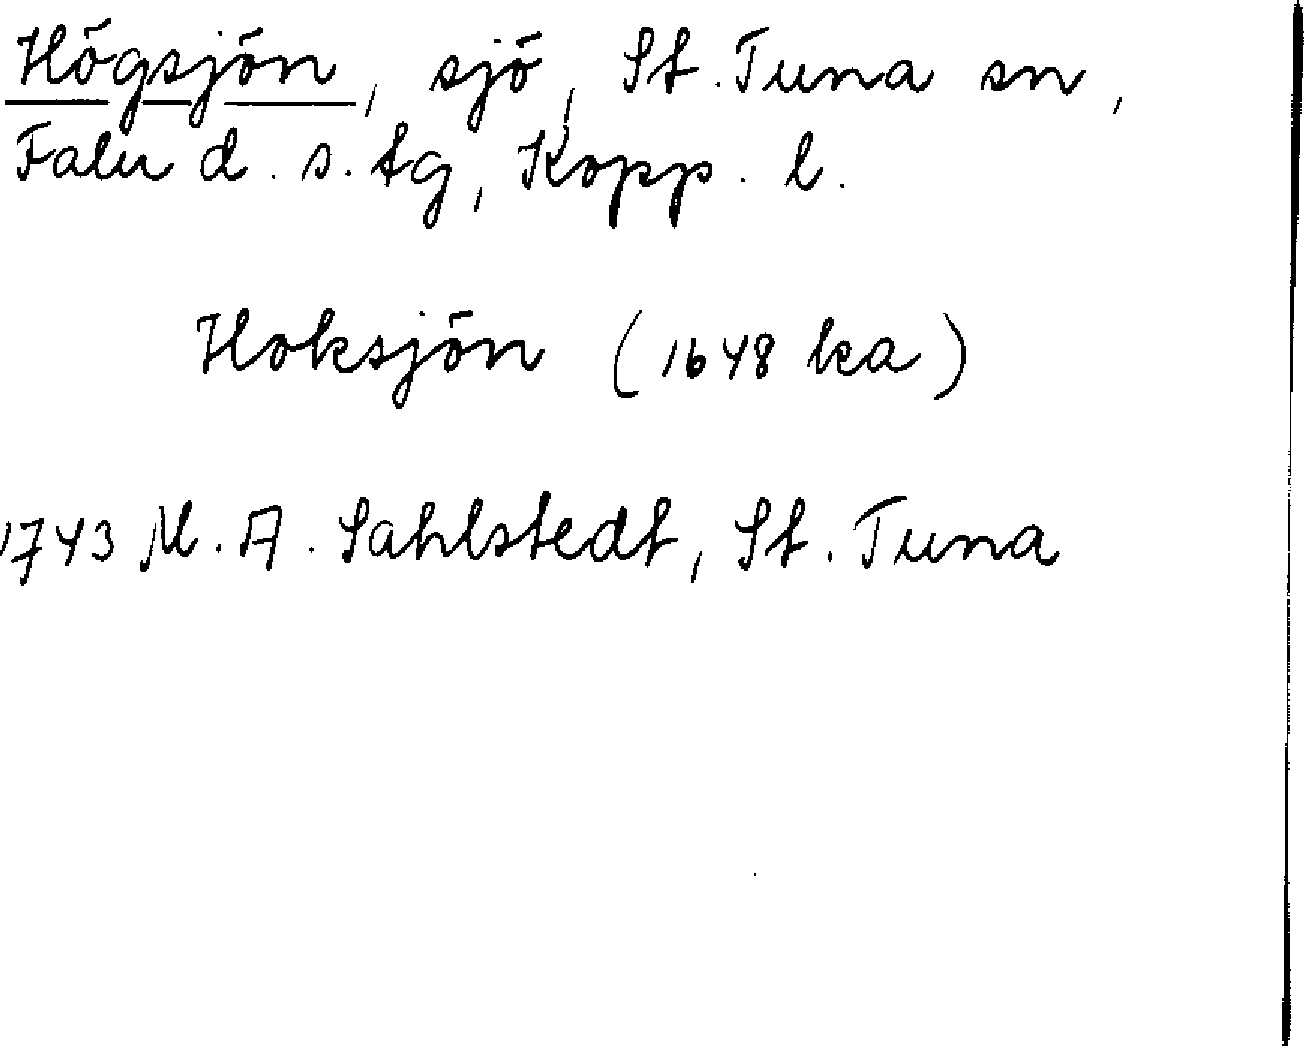 Högsjön, sjö, St. Tuna sn,
Falu d. s. tg, Kopp. l.
Hoksjön (1648 ka)
1743 M. A. Sahlstedt, St. Tuna